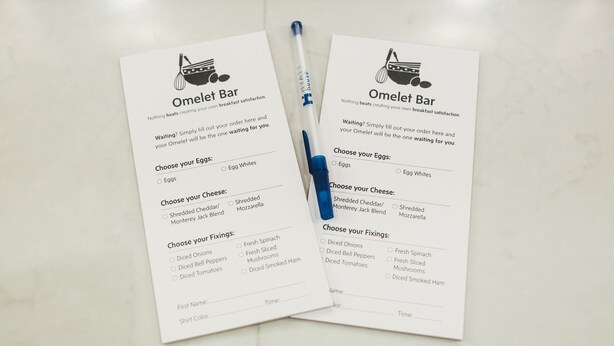 Omelet Bar
Nothing beats creating your own breakfast satisfaction.
Waiting? Simply fill out your order here and
your Omelet will be the one waiting for you.
Choose your Eggs:
Eggs Egg Whites
Choose your Cheese:
Shredded Cheddar/ Shredded
Monterey Jack Blend Mozzarella
Choose your Fixings:
Diced Onions Fresh Spinach
Diced Bell Peppers Fresh Sliced
Diced Tomatoes Mushrooms
Diced Smoked Ham
First Name:
Shirt Color: Time:
Omelet Bar
Nothing beats creating your own breakfast satisfaction.
Waiting? Simply fill out your order here and
your Omelet will be the one waiting for you.
Choose your Eggs:
Eggs Egg Whites
Choose your Cheese:
Shredded Cheddar/ Shredded
Monterey Jack Blend Mozzarella
Choose your Fixings:
Diced Onions Fresh Spinach
Diced Bell Peppers Fresh Sliced
Diced Tomatoes Mushrooms
Diced Smoked Ham
First Name:
Shirt Color: Time: